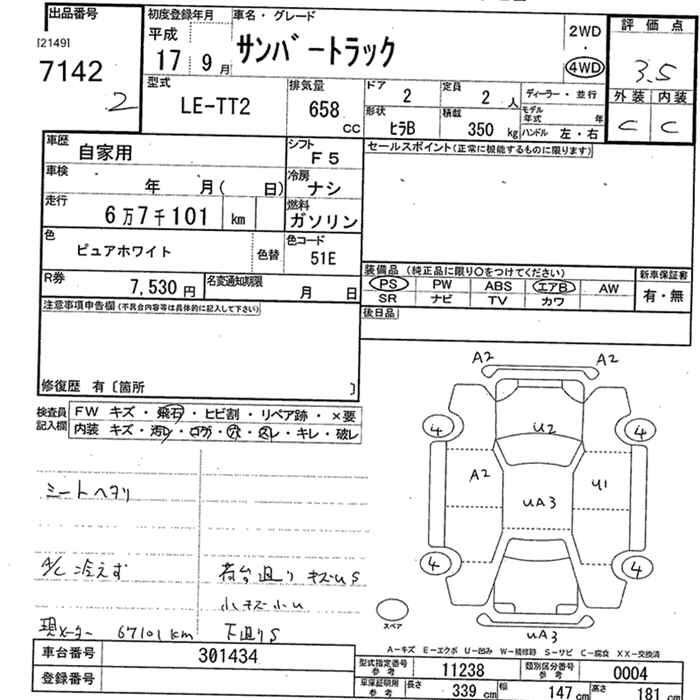 出品番号
[2149]
7142
2
初度登録年月
平成
17 9月
車名・グレード
サンバートラック
2WD
・
4WD
評価点
3.5
外装 内装
C C
型式
LE-TT2
排気量
658 CC
ドア
2
定員
2 人
形状
ヒラB
積載
350 kg
ディーラー・並行
モデル年式 年
ハンドル 左・右
車歴
自家用
シフト
F5
車検
年 月( 日)
冷房
ナシ
走行
6万7千101 km
燃料
ガソリン
色
ピュアホワイト
色替
色コード
51E
R券
7,530 円
名変通知期限
月 日
セールスポイント(正常に機能するものに限ります)
装備品 (純正品に限り○をつけてください)
新車保証書
PS PW ABS エアB AW
有・無
SR ナビ TV カワ
後日品
注意事項申告欄(不具合内容等は具体的に記入して下さい)
修復歴 有〔箇所 〕
検査員記入欄
FW キズ・飛石・ヒビ割・リペア跡・×要
内装 キズ・汚レ・コゲ・穴・スレ・キレ・破レ
シートヘタリ
A/C 冷えず
現メーター 67101km
荷台廻り キズUS
小キズ小U
下廻りS
A2 A2
4 U2 4
A2 UA3 U1
4 4
スペア
UA3
A-キズ E-エクボ U-凹み W-補修跡 S-サビ C-腐食 XX-交換済
車台番号
301434
登録番号
型式指定番号 参考
11238
類別区分番号 参考
0004
車庫証明用 参考
長さ 339 cm 幅 147 cm 高さ 181 cm